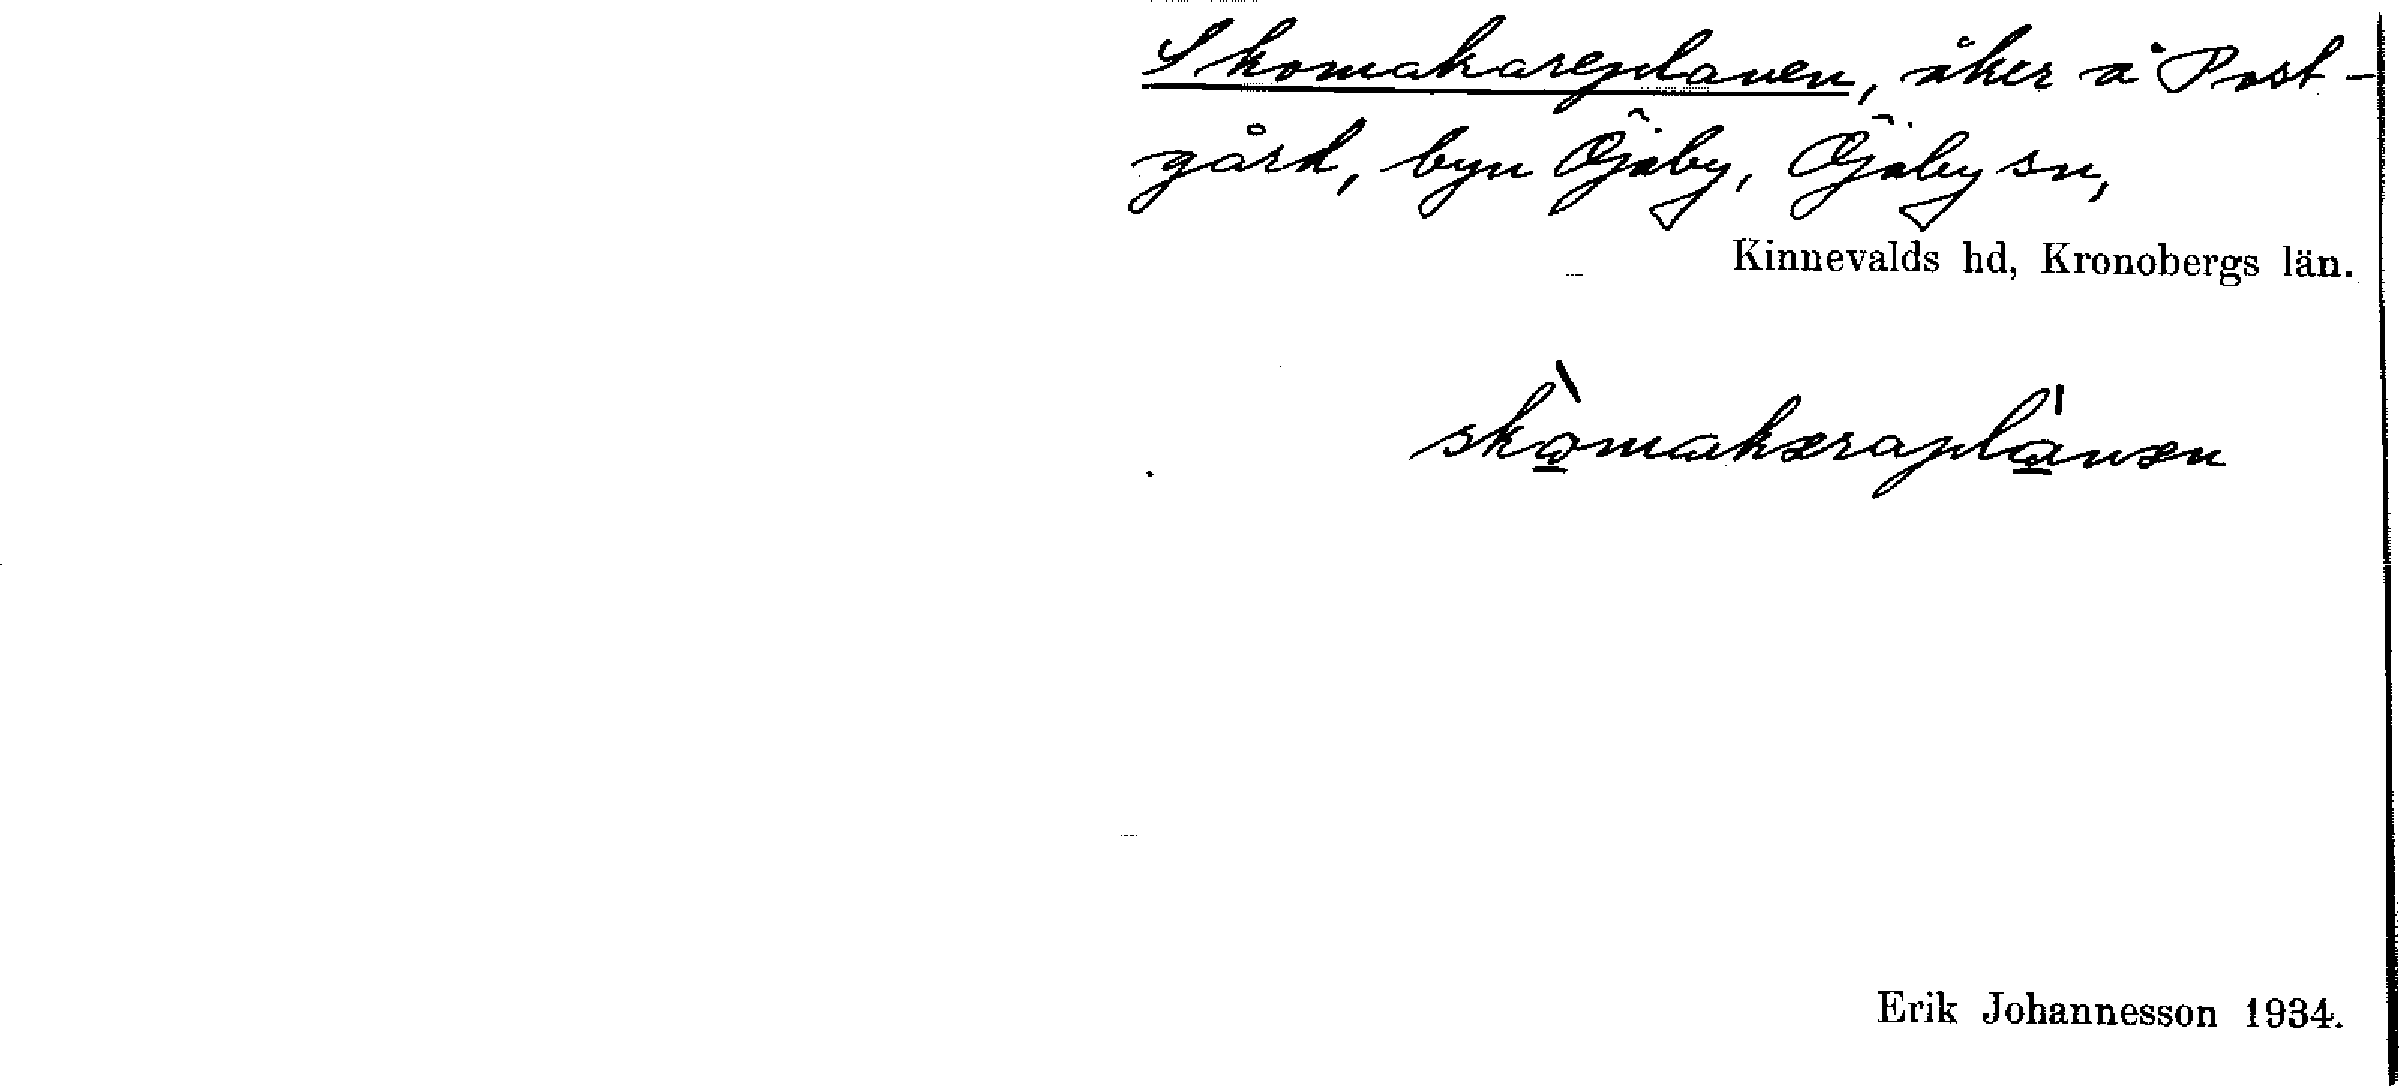 Skomakareplanen, åker å Post-
gård, byn Öjaby, Öjaby sn,
Kinnevalds hd, Kronobergs län.
skòmakæraplánæn
Erik Johannesson 1934.